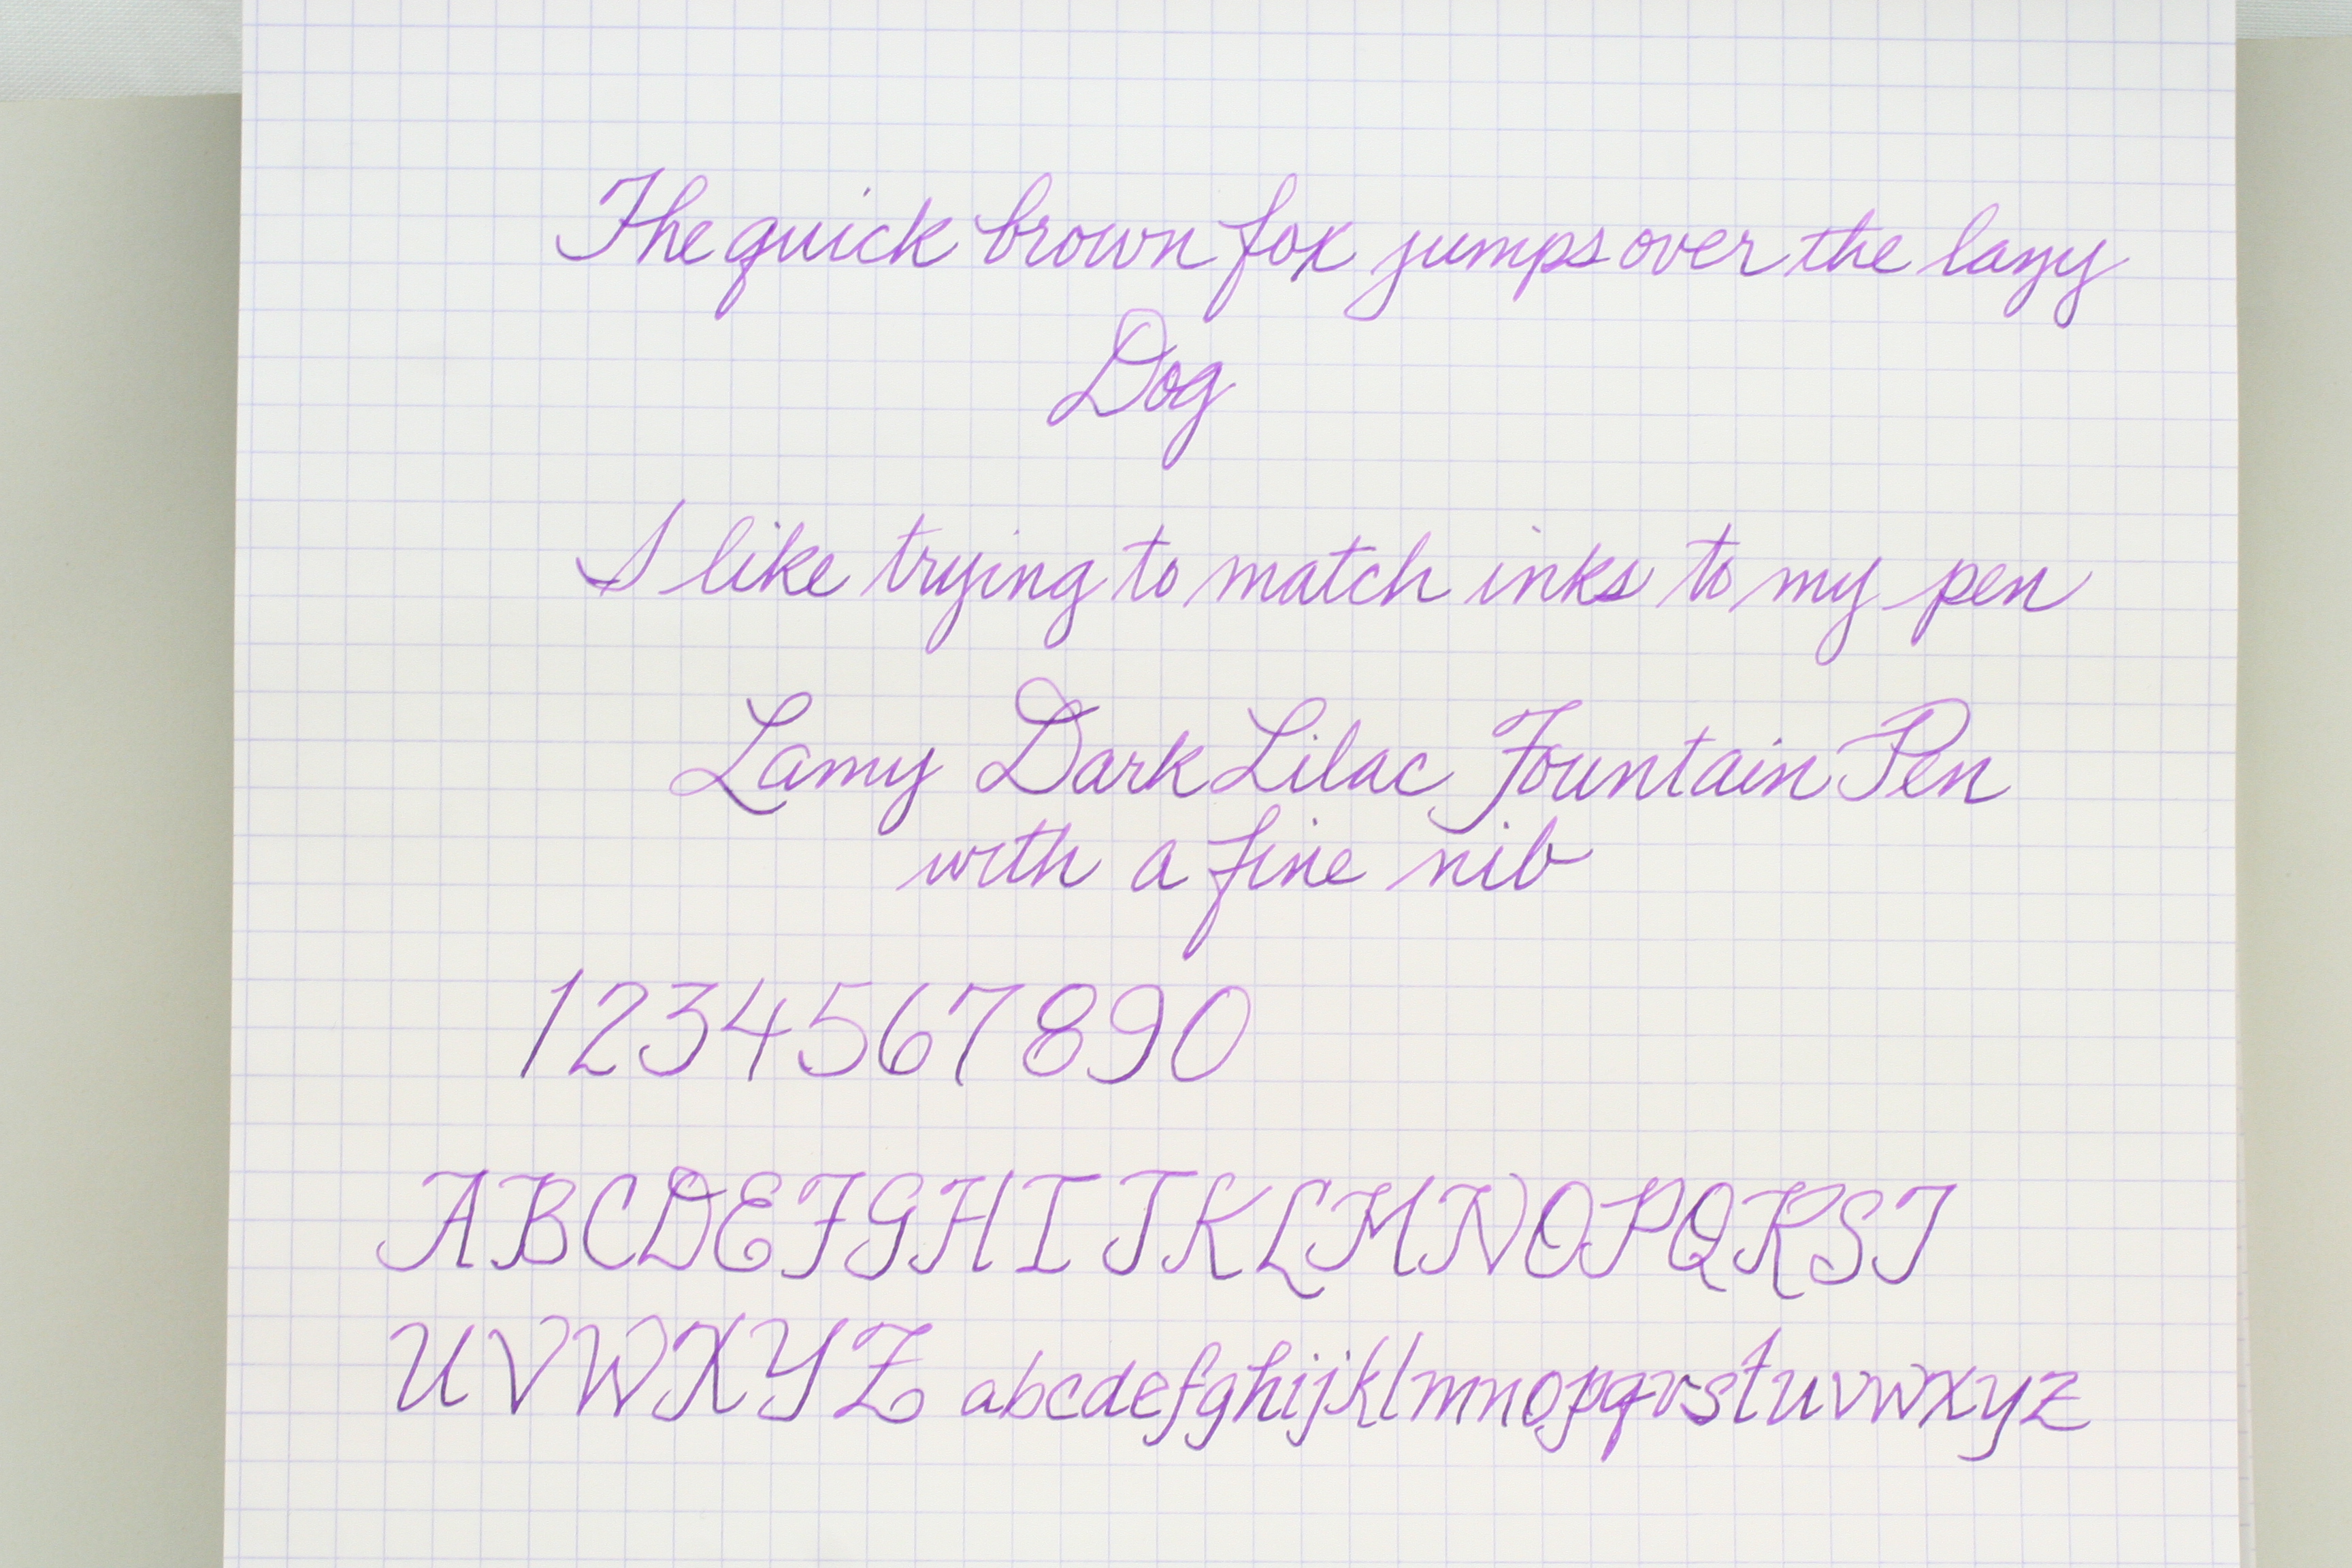 The quick brown fox jumps over the lazy
Dog
I like trying to match inks to my pen
Lamy Dark Lilac Fountain Pen
with a fine nib
1234567890
ABCDEFGHIJKLMNOPQRST
UVWXYZ abcdefghijklmnopqrstuvwxyz